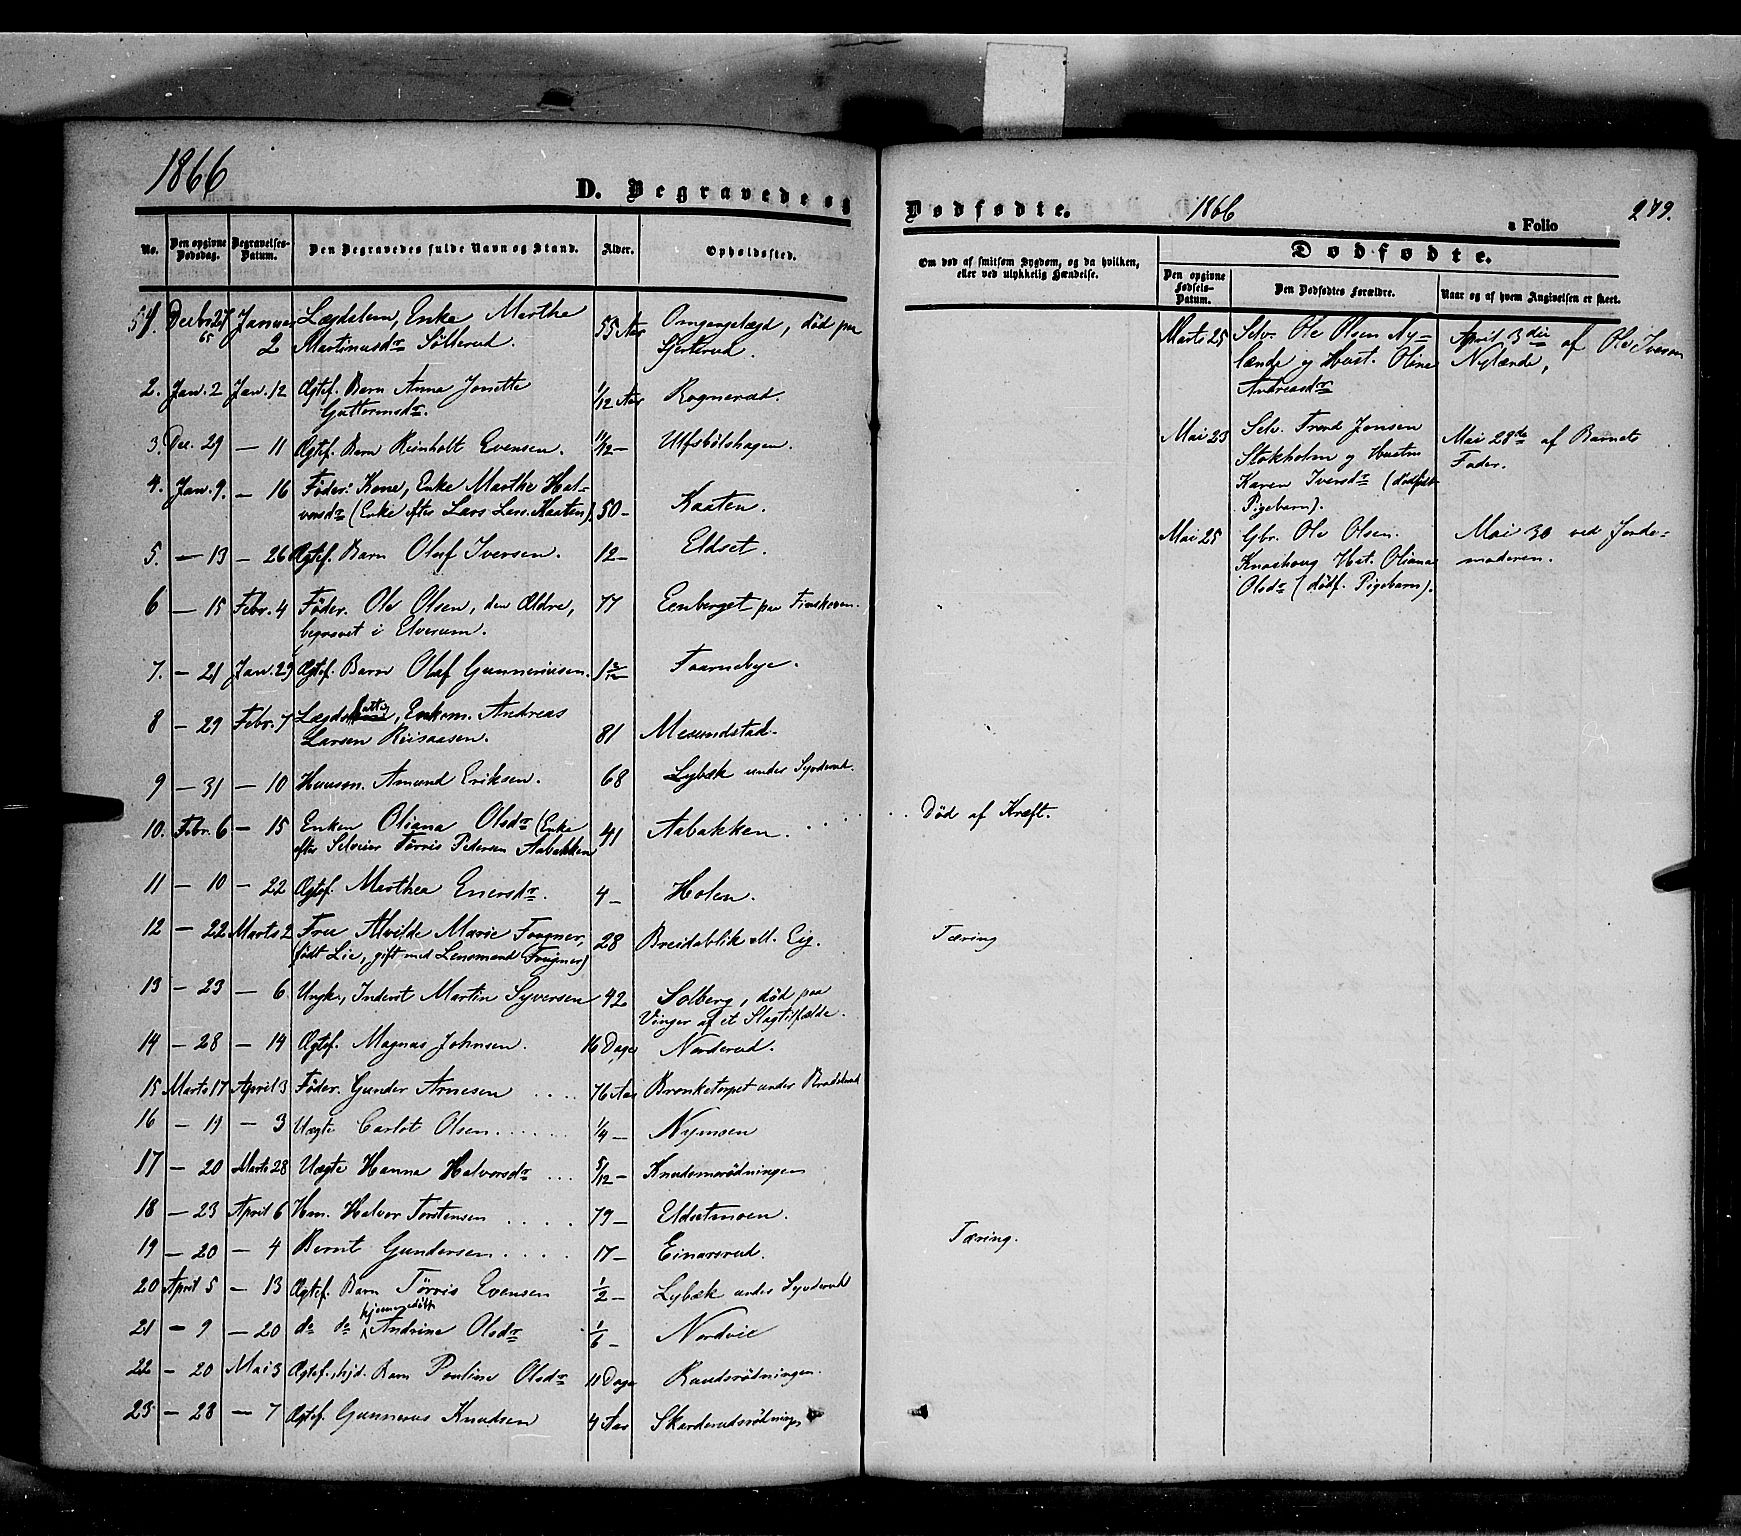 1866
D. Begravede og
No.
Den opgivne Dødsdag.
Begravelses-Datum.
Den Begravedes fulde Navn og Stand.
Alder.
Opholdssted.
Decbr 27 65 Januar 2 Lægdslem, Enke Marthe 55 Aar Omgangslægd, død paa
Martinusdr
2. Jan. 2 Jan. 12 Ægtef. Barn Anna Jonette 1/12 Aar Rognerud.
Guttormsdr.
3. Dec. 29 — 11 Ægtef. Barn Reinholt Evensen. 11/12 — Ulfsbølshagen.
4. Jan. 9. — 16 Føder. Kone, Enke Marthe Hal-
vorsdr (Enke efter Lars Lars. Kaaten). 50 — Kaaten.
5. — 13 — 26 Ægtef. Barn Olaf Iversen. 12 — Eldset.
6 — 15 Febr. 4 Føder. Ole Olsen, den Ældre, 77 Eenberget paa Finskoven.
begravet i Elverum.
7. — 21 Jan. 29 Ægtef. Barn Olaf Gunneriusen. Taarnebye.
8 — 29 Febr. 7 Enkem. Andreas
Larsen 81
9 — 31 — 10 Huusm. Amund Eriksen. 68 Lybæk under Syverud.
10. Febr. 6 — 15 Enken Oliana Olsdr (Enke 41 Aabakken.
efter Selveier Tørris Pedersen Aabakken
11 — 10 — 22 Ægtef. Marthea Enersdr. 4 — Holen.
12 — 22 Marts 2 Fru Alvilde Marie Fougner, 28 Breidablik M. Eg.
født Lie, gift med Lensmand Fougner)
13 — 23 — 6 Ungk., Inderst Martin Syversen 42 Solberg, død paa
Vinger af et Slagtilfælde.
14 — 28 — 14 Ægtef. Magnus Johnsen. 16 Dage Norderud.
15 Marts 17 April 3 Føder. Gunder Arnesen 76 Aar Bronketorpet under
16 — 19 — 3 Uægte Carlot Olsen 1/4 — Nymoen
17 — 20 Marts 28 Uægte Hanna Halvorsdr 5/12 —
18 — 23 April 6 Hm. Halvor Torstensen 79 — Eldsetmoen.
19 — 20 — 4 Bernt Gundersen 17 — Einarsrud.
20 April 5 — 13 Ægtef. Barn Tørris Evensen 1/2 — Lybæk under Syverud
21 — 9 — 20 do do hjemmedøbt Andrine Olsdr 1/6 — Nordvie
22 — 20 Mai 3 Ægtef., hjd. Barn Pouline Olsdr 11 Dage
23 — 28 — 7 Ægtef. Gunnerus Knudsen 4 Aar
Dødfødte.
1866
a Folio
279.
Om død af smitsom Sygdom, og da hvilken,
eller ved ulykkelig Hændelse.
Dødfødte.
Den opgivne Fødsels-Datum.
Den Dødfødtes Forældre.
Naar og af hvem Angivelsen er skeet.
Marts 25 Selv. Ole Olsen Ny- April 3die af Ole Iversen
lænde og Hust. Oline Nylænde,
Andreasdr
Mai 23 Selv. Trond Jonsen Mai 28de af Barnets
Stokholm og Hustru Fader.
Karen Iversdr (dødfødt
Pigebarn).
Mai 25 Gbr. Ole Olsen Mai 30 ved Jorde-
Knashoug Hst. Oliana moderen.
Olsdr (dødf. Pigebarn).
Død af Kræft.
Tæring
Tæring.